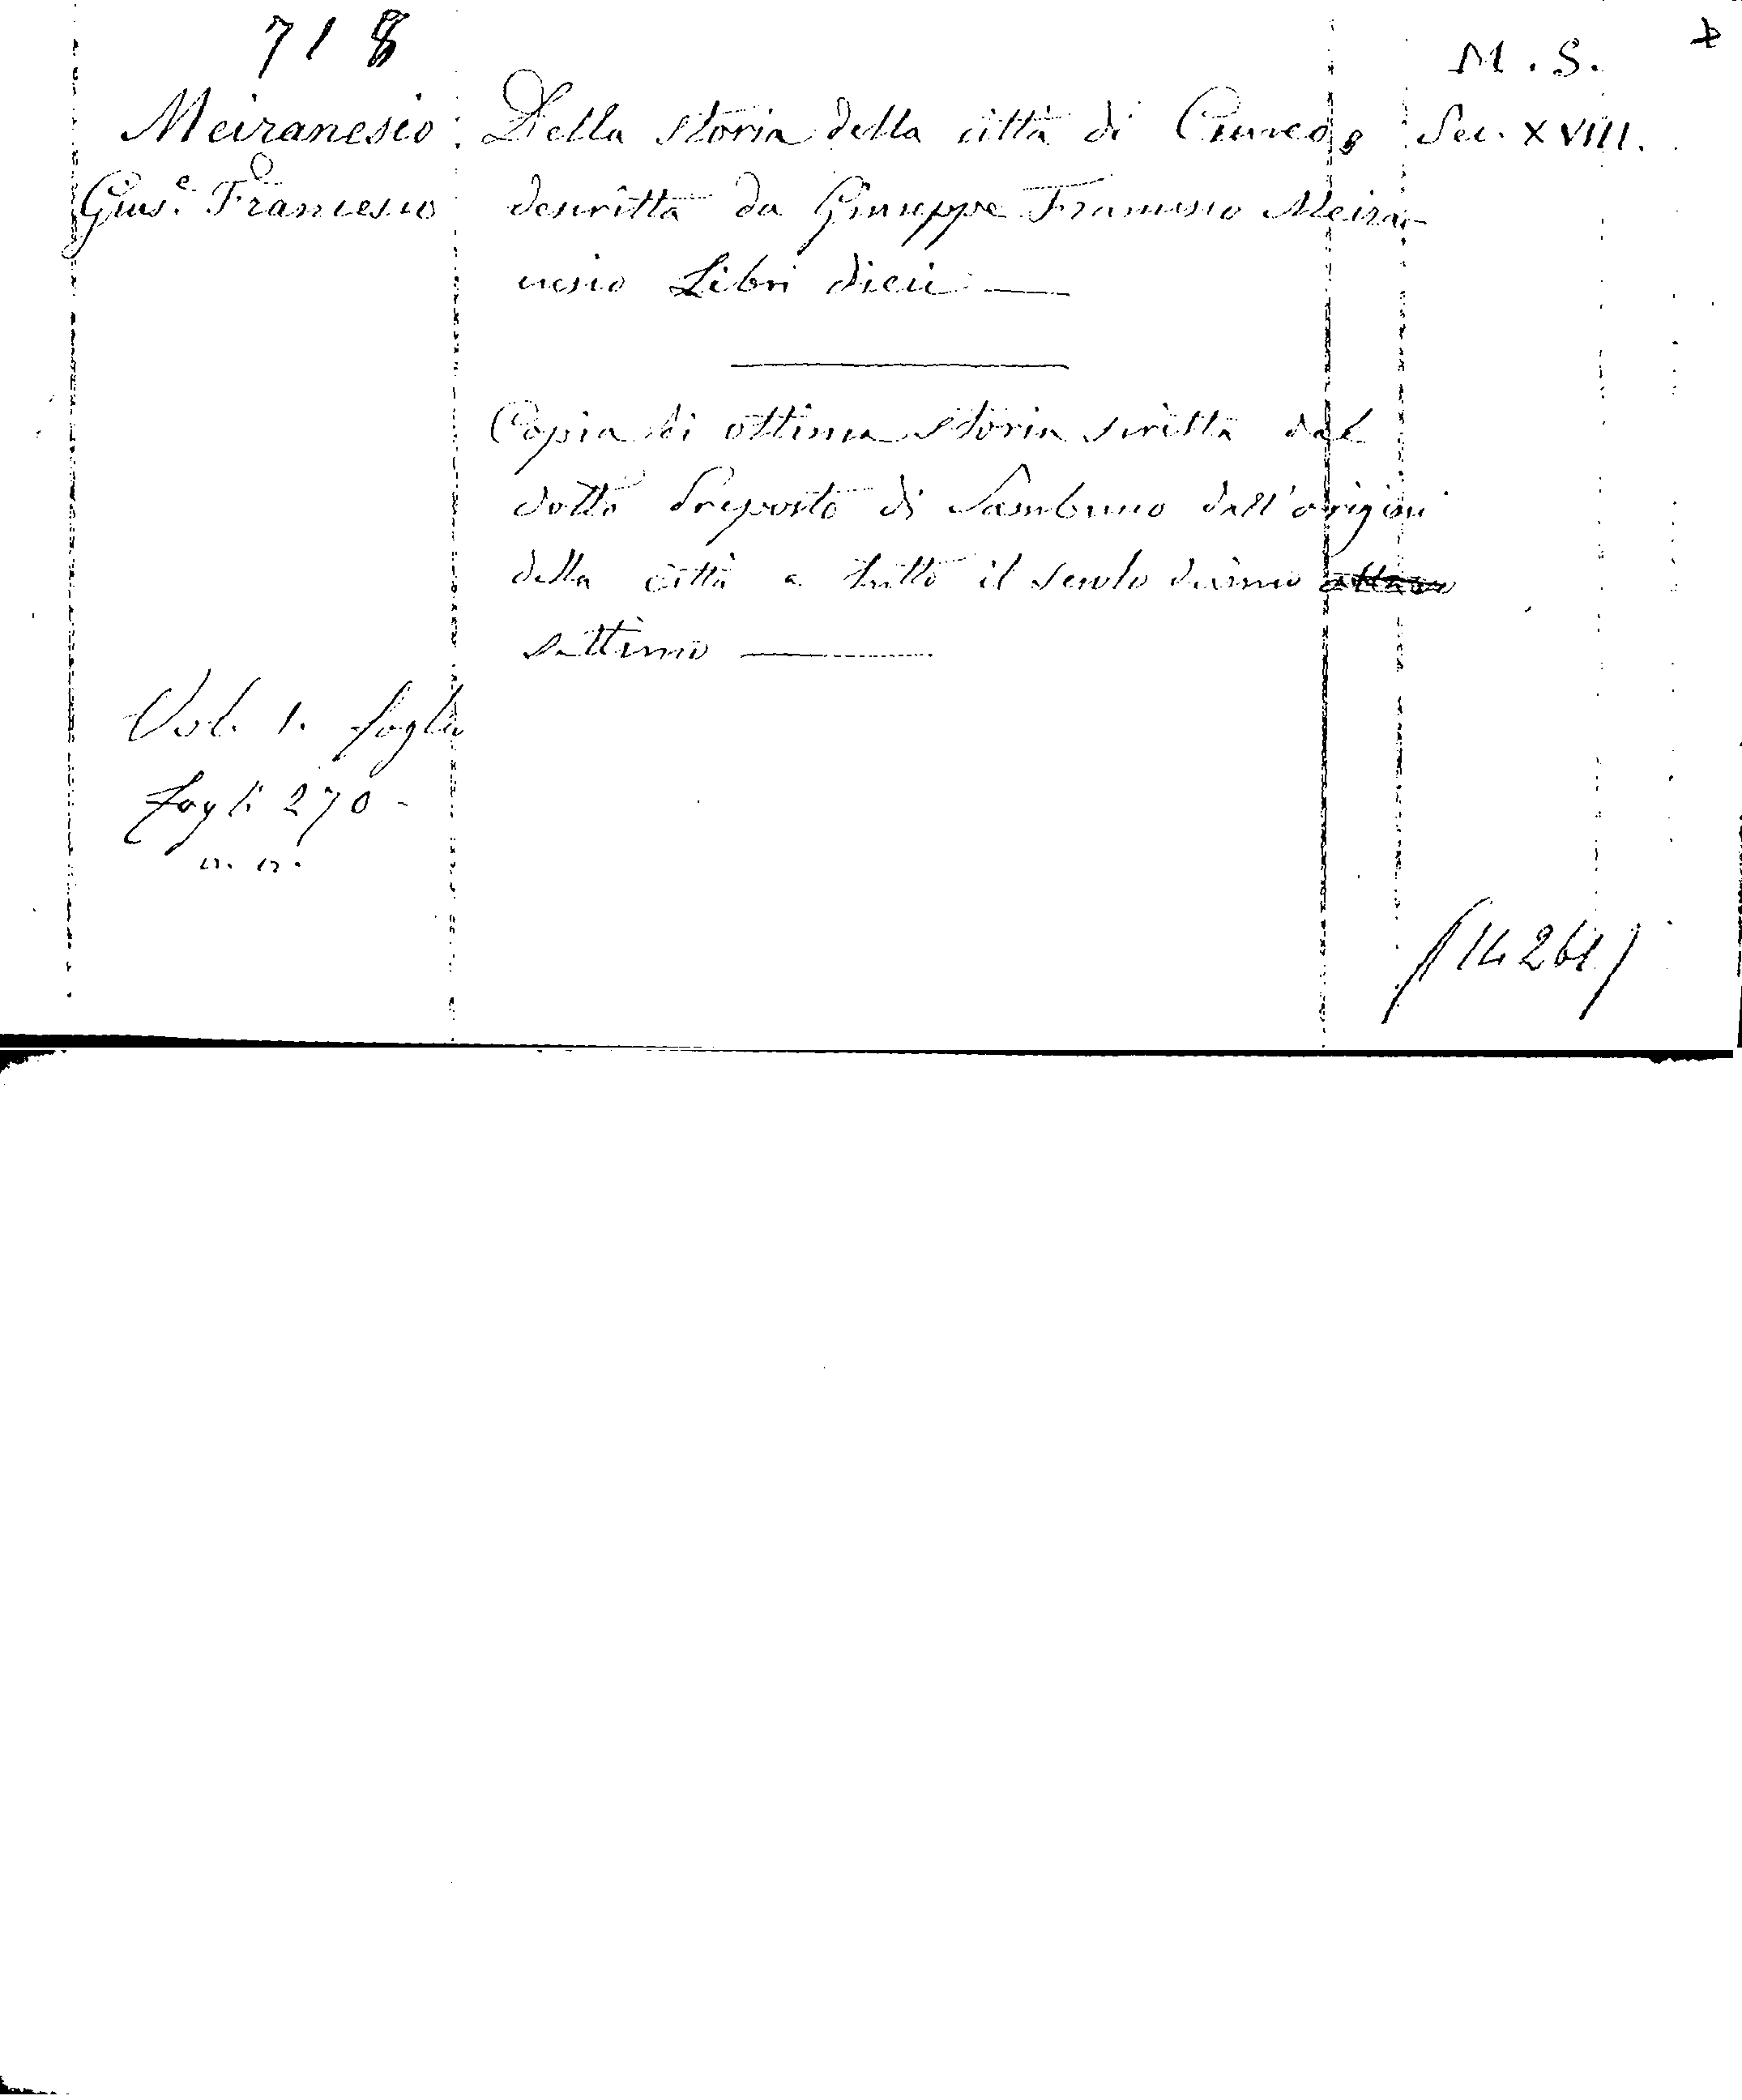 718
M. S.
Meiranesio
Gius.e Francesco
Della storia della città di Cuneo,
descritta da Giuseppe Francesco Meira-
nesio Libri dieci —
Sec. XVIII.
Copia di ottima storia scritta dal
dotto Preposto di Sambuco dall'origini
della città a tutto il secolo decimo ottavo
settimo —
Vol. 1. foglio
fogli 270 -
n. n.
(14261)